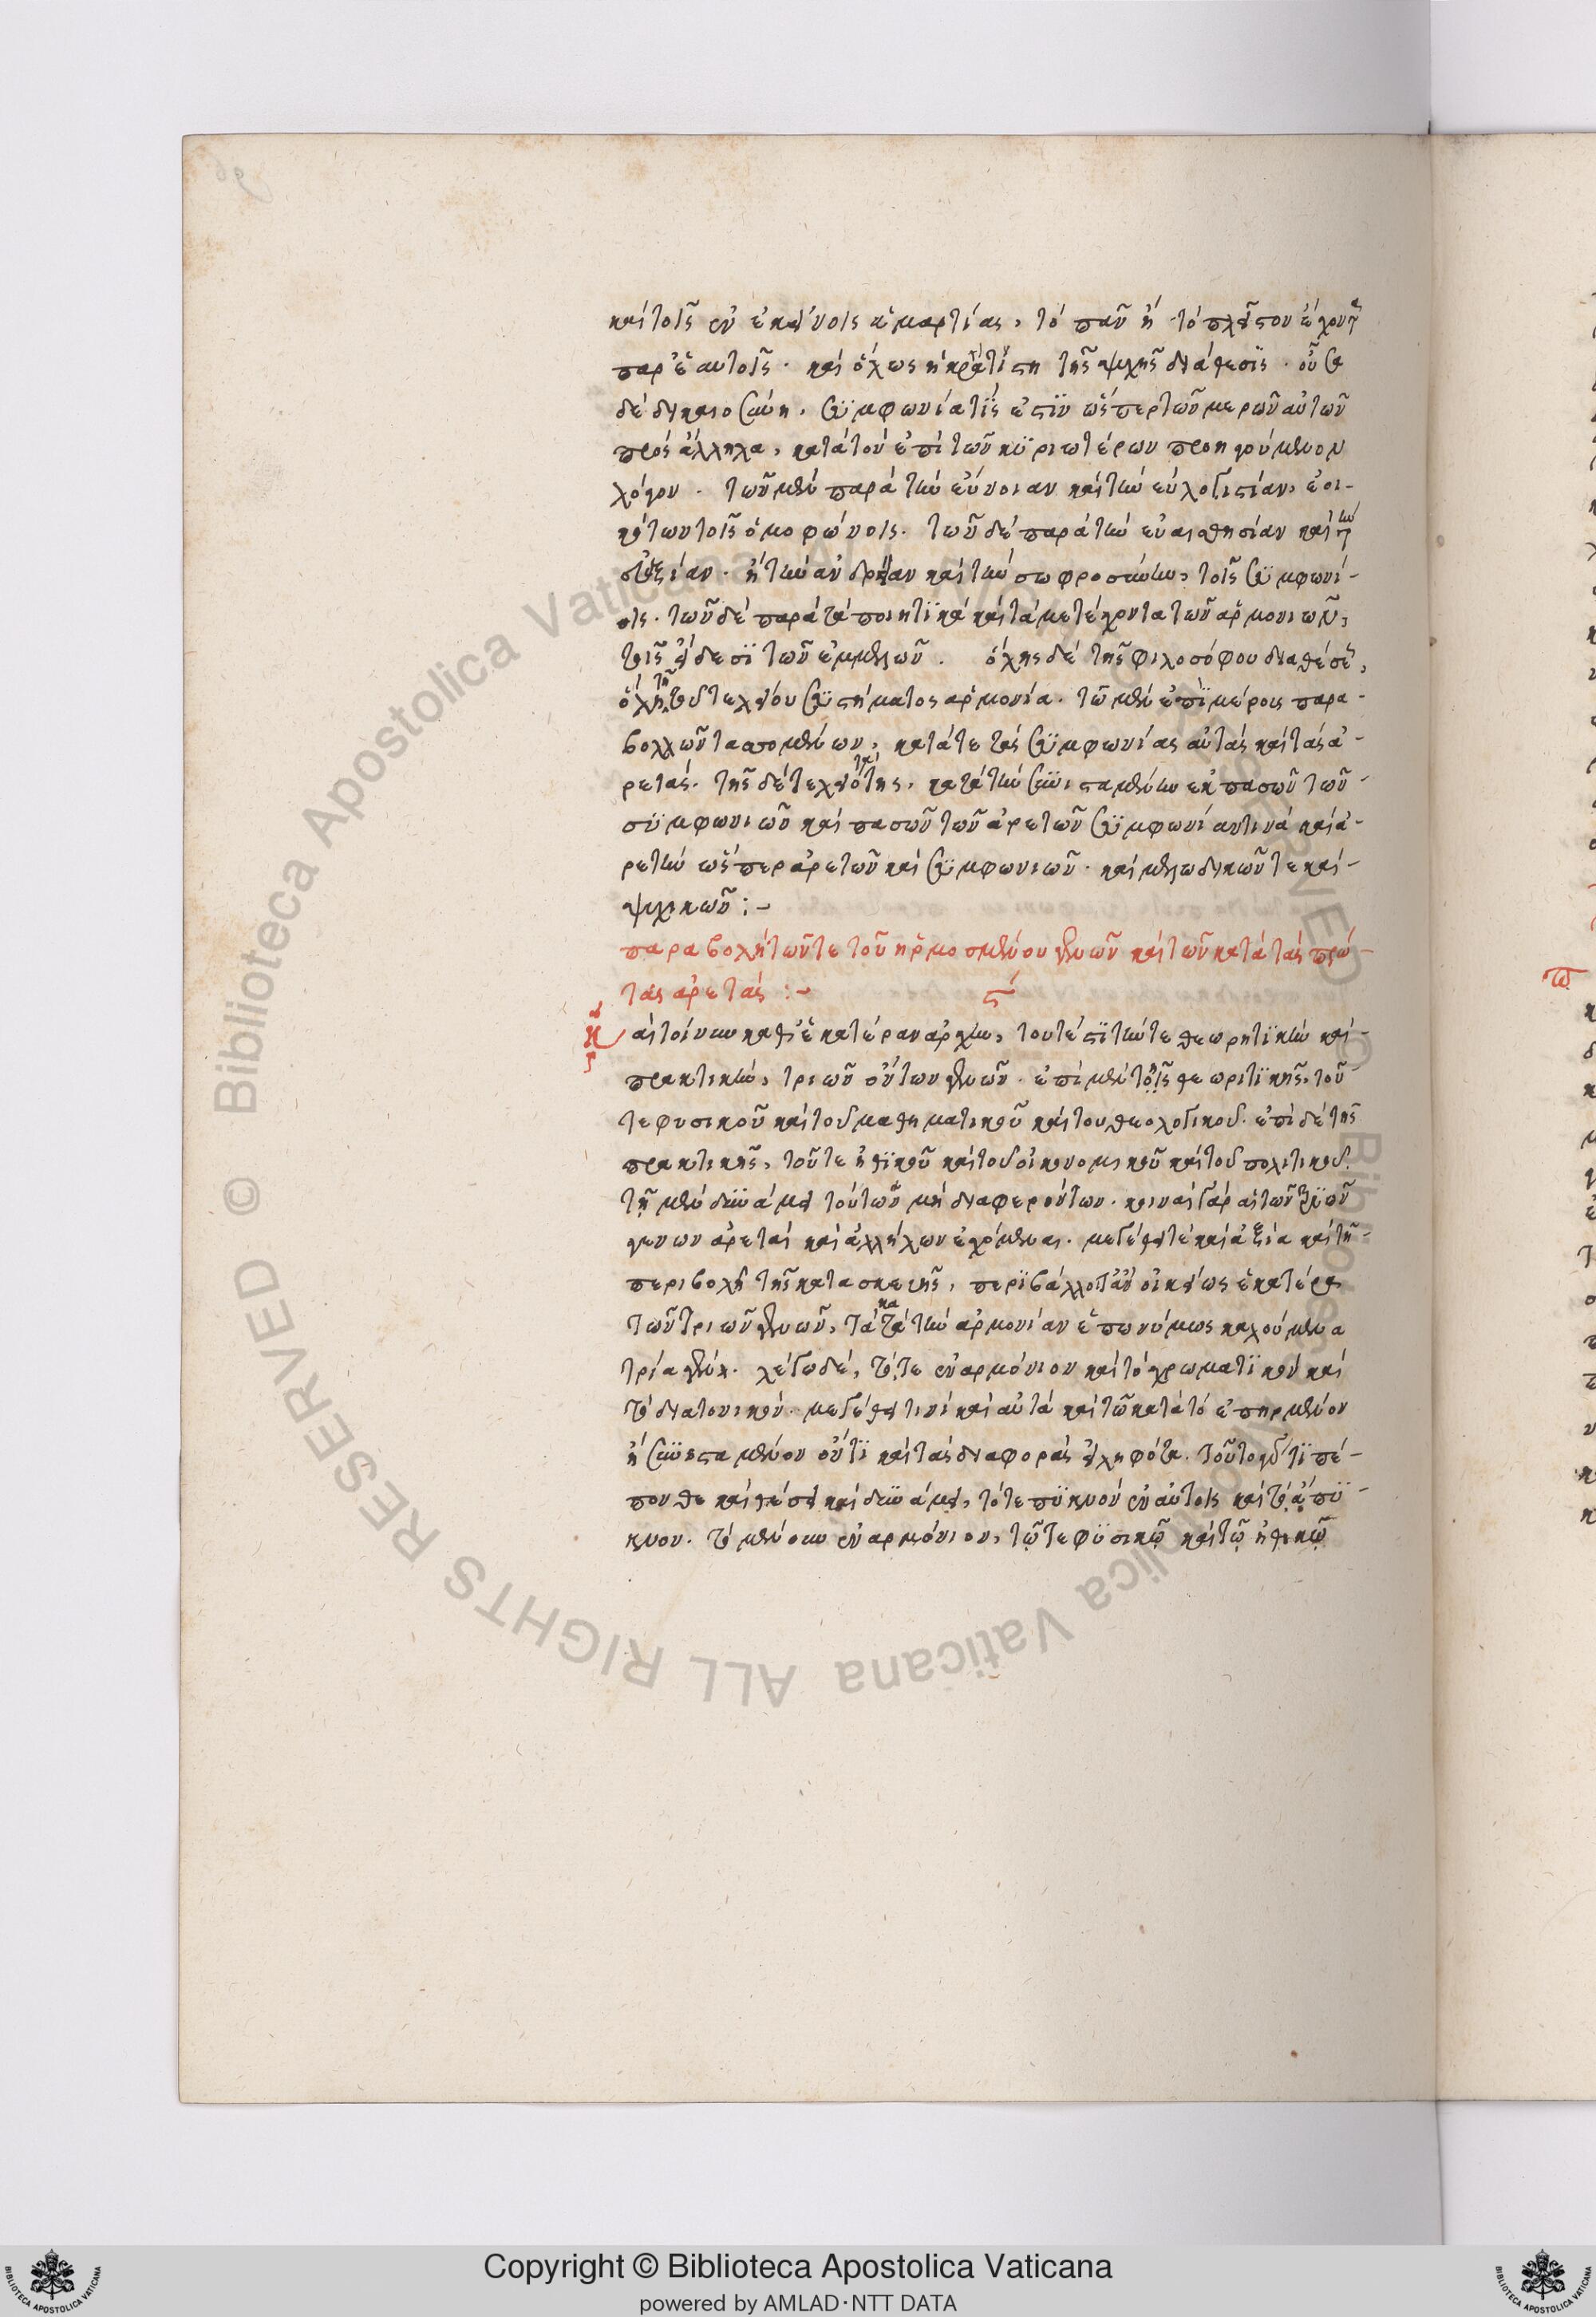 καὶ τοῖς ἐν ἐκείνοις ἁμαρτίας, τὸ πᾶν ἢ τὸ πλεῖστον ἐχούσης
παρ' ἑαυτοῖς. καὶ ὅλως ἡ κρατίστη τῆς ψυχῆς διάθεσις. οὖσα
δὲ δικαιοσύνη, συμφωνία τίς ἐστιν ὥσπερ τῶν μερῶν αὐτῶν
πρὸς ἄλληλα, κατὰ τὸν ἐπὶ τῶν κυριωτέρων προηγούμενον
λόγον. τῶν μὲν παρὰ τὴν εὔνοιαν καὶ τὴν εὐλογιστίαν, ἐοι-
κότων τοῖς ὁμοφώνοις. τῶν δὲ παρὰ τὴν εὐαισθησίαν καὶ τὴν
εὐεξίαν. ἢ τὴν ἀνδρείαν καὶ τὴν σωφροσύνην, τοῖς συμφώνοις
. τῶν δὲ παρὰ τὰ ποιητικὰ καὶ τὰ μετέχοντα τῶν ἁρμονιῶν,
τοῖς εἴδεσι τῶν ἐμμελῶν. ὅλης δὲ τῆς φιλοσόφου διαθέσεως,
ὅλῃ τῇ τοῦ τελείου συστήματος ἁρμονίᾳ. τῶν μὲν ἐπὶ μέρους παρα-
βολῶν τασσομένων, κατά τε τὰς συμφωνίας αὐτὰς καὶ τὰς ἀ-
ρετάς. τῆς δὲ τελειοτάτης, κατὰ τὴν συνισταμένην ἐκ πασῶν τῶν
συμφωνιῶν καὶ πασῶν τῶν ἀρετῶν συμφωνίαν τινὰ καὶ ἀ-
ρετὴν ὥσπερ ἀρετῶν καὶ συμφωνιῶν. καὶ μελωδικῶν τε καὶ
ψυχικῶν :-
παραβολὴ τῶν τε τοῦ ἡρμοσμένου γενῶν καὶ τῶν κατὰ τὰς πρώ-
τας ἀρετάς :- ϛ´
Καὶ τοίνυν καθ' ἑκατέραν ἀρχὴν, τουτέστι τήν τε θεωρητικὴν καὶ
πρακτικὴν, τριῶν ὄντων γενῶν. ἐπὶ μὲν τῆς θεωριτικῆς, τοῦ
τε φυσικοῦ καὶ τοῦ μαθηματικοῦ καὶ τοῦ θεολογικοῦ. ἐπὶ δὲ τῆς
πρακτικῆς, τοῦ τε ἠθικοῦ καὶ τοῦ οἰκονομικοῦ καὶ τοῦ πολιτικοῦ.
τῇ μὲν δυνάμει τούτων μὴ διαφερόντων. κοιναὶ γὰρ αἱ τῶν τριῶν
γενων ἀρεταὶ καὶ ἀλλήλων ἐχόμεναι. μεγέθει τὲ καὶ ἀξίᾳ καὶ τῇ
περιβολῇ τῆς κατασκευῆς, περιβάλλοιτ' ἂν οἰκείως ἑκατέρᾳ
τῶν τριῶν γενῶν, τὰ κατὰ τὴν ἁρμονίαν ἐπωνύμως καλούμενα
τρία γένη. λέγω δὲ, τό τε ἐναρμόνιον καὶ τὸ χρωματικὸν καὶ
τὸ διατονικὸν. μεγέθει τινὶ καὶ αὐτὰ καὶ τῷ κατὰ τὸ ἐπηρμένον
ἢ συνεσταμένον ὄντι καὶ τὰς διαφορὰς εἰληφότα. τοῦτο γάρ τι πέ-
πονθε καὶ θέσει καὶ δυνάμει, τό τε πυκνὸν ἐν αὐτοῖς καὶ τὸ ἄπυ-
κνον. τὸ μὲν οὖν ἐναρμόνιον, τῷ τε φυσικῷ καὶ τῷ ἠθικῷ
Copyright © Biblioteca Apostolica Vaticana
powered by AMLAD·NTT DATA